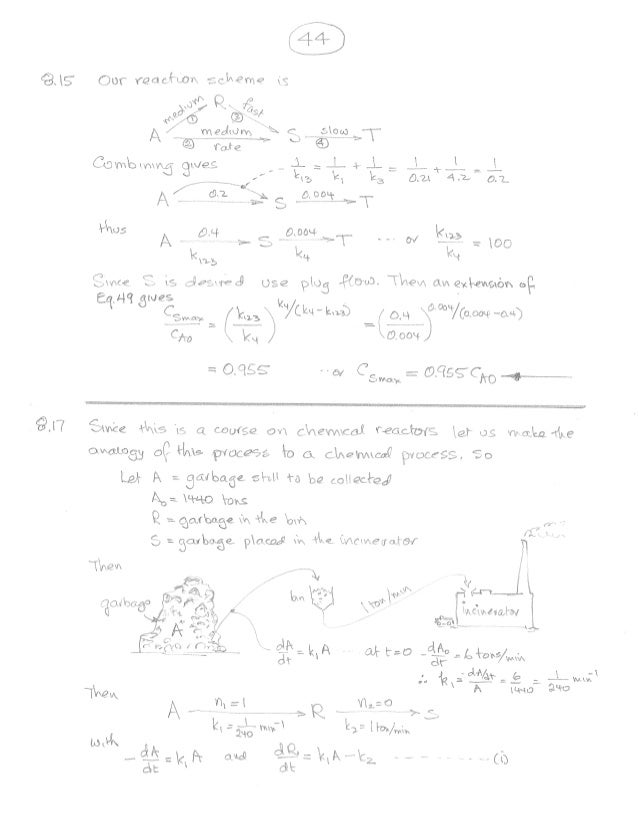 44
8.15 Our reaction scheme is
medium ① R ③ fast
A medium ② rate S slow ④ T
Combining gives 1/k13 = 1/k1 + 1/k3 = 1/0.21 + 1/4.2 = 1/0.2
A 0.2 S 0.004 T
thus A 0.4 k123 S 0.004 k4 T ... or k123/k4 = 100
Since S is desired use plug flow. Then an extension of
Eq.49 gives
CSmax/CA0 = (k123/k4)^k4/(k4-k123) = (0.4/0.004)^0.004/(0.004-0.4)
= 0.955 ... or CSmax = 0.955 CA0
8.17 Since this is a course on chemical reactors let us make the
analogy of this process to a chemical process. So
Let A = garbage still to be collected
A0 = 1440 tons
R = garbage in the bin
S = garbage placed in the incinerator
Then
garbage A bin 1 ton/min incinerator
dA/dt = k1A ... at t=0 -dA0/dt = 6 tons/min
∴ k1 = dA/dt/A = 6/1440 = 1/240 min-1
Then
A n1=1 k1 = 1/240 min-1 R n2=0 k2 = 1 ton/min S
with
-dA/dt = k1A and dR/dt = k1A-k2 ---------- (i)